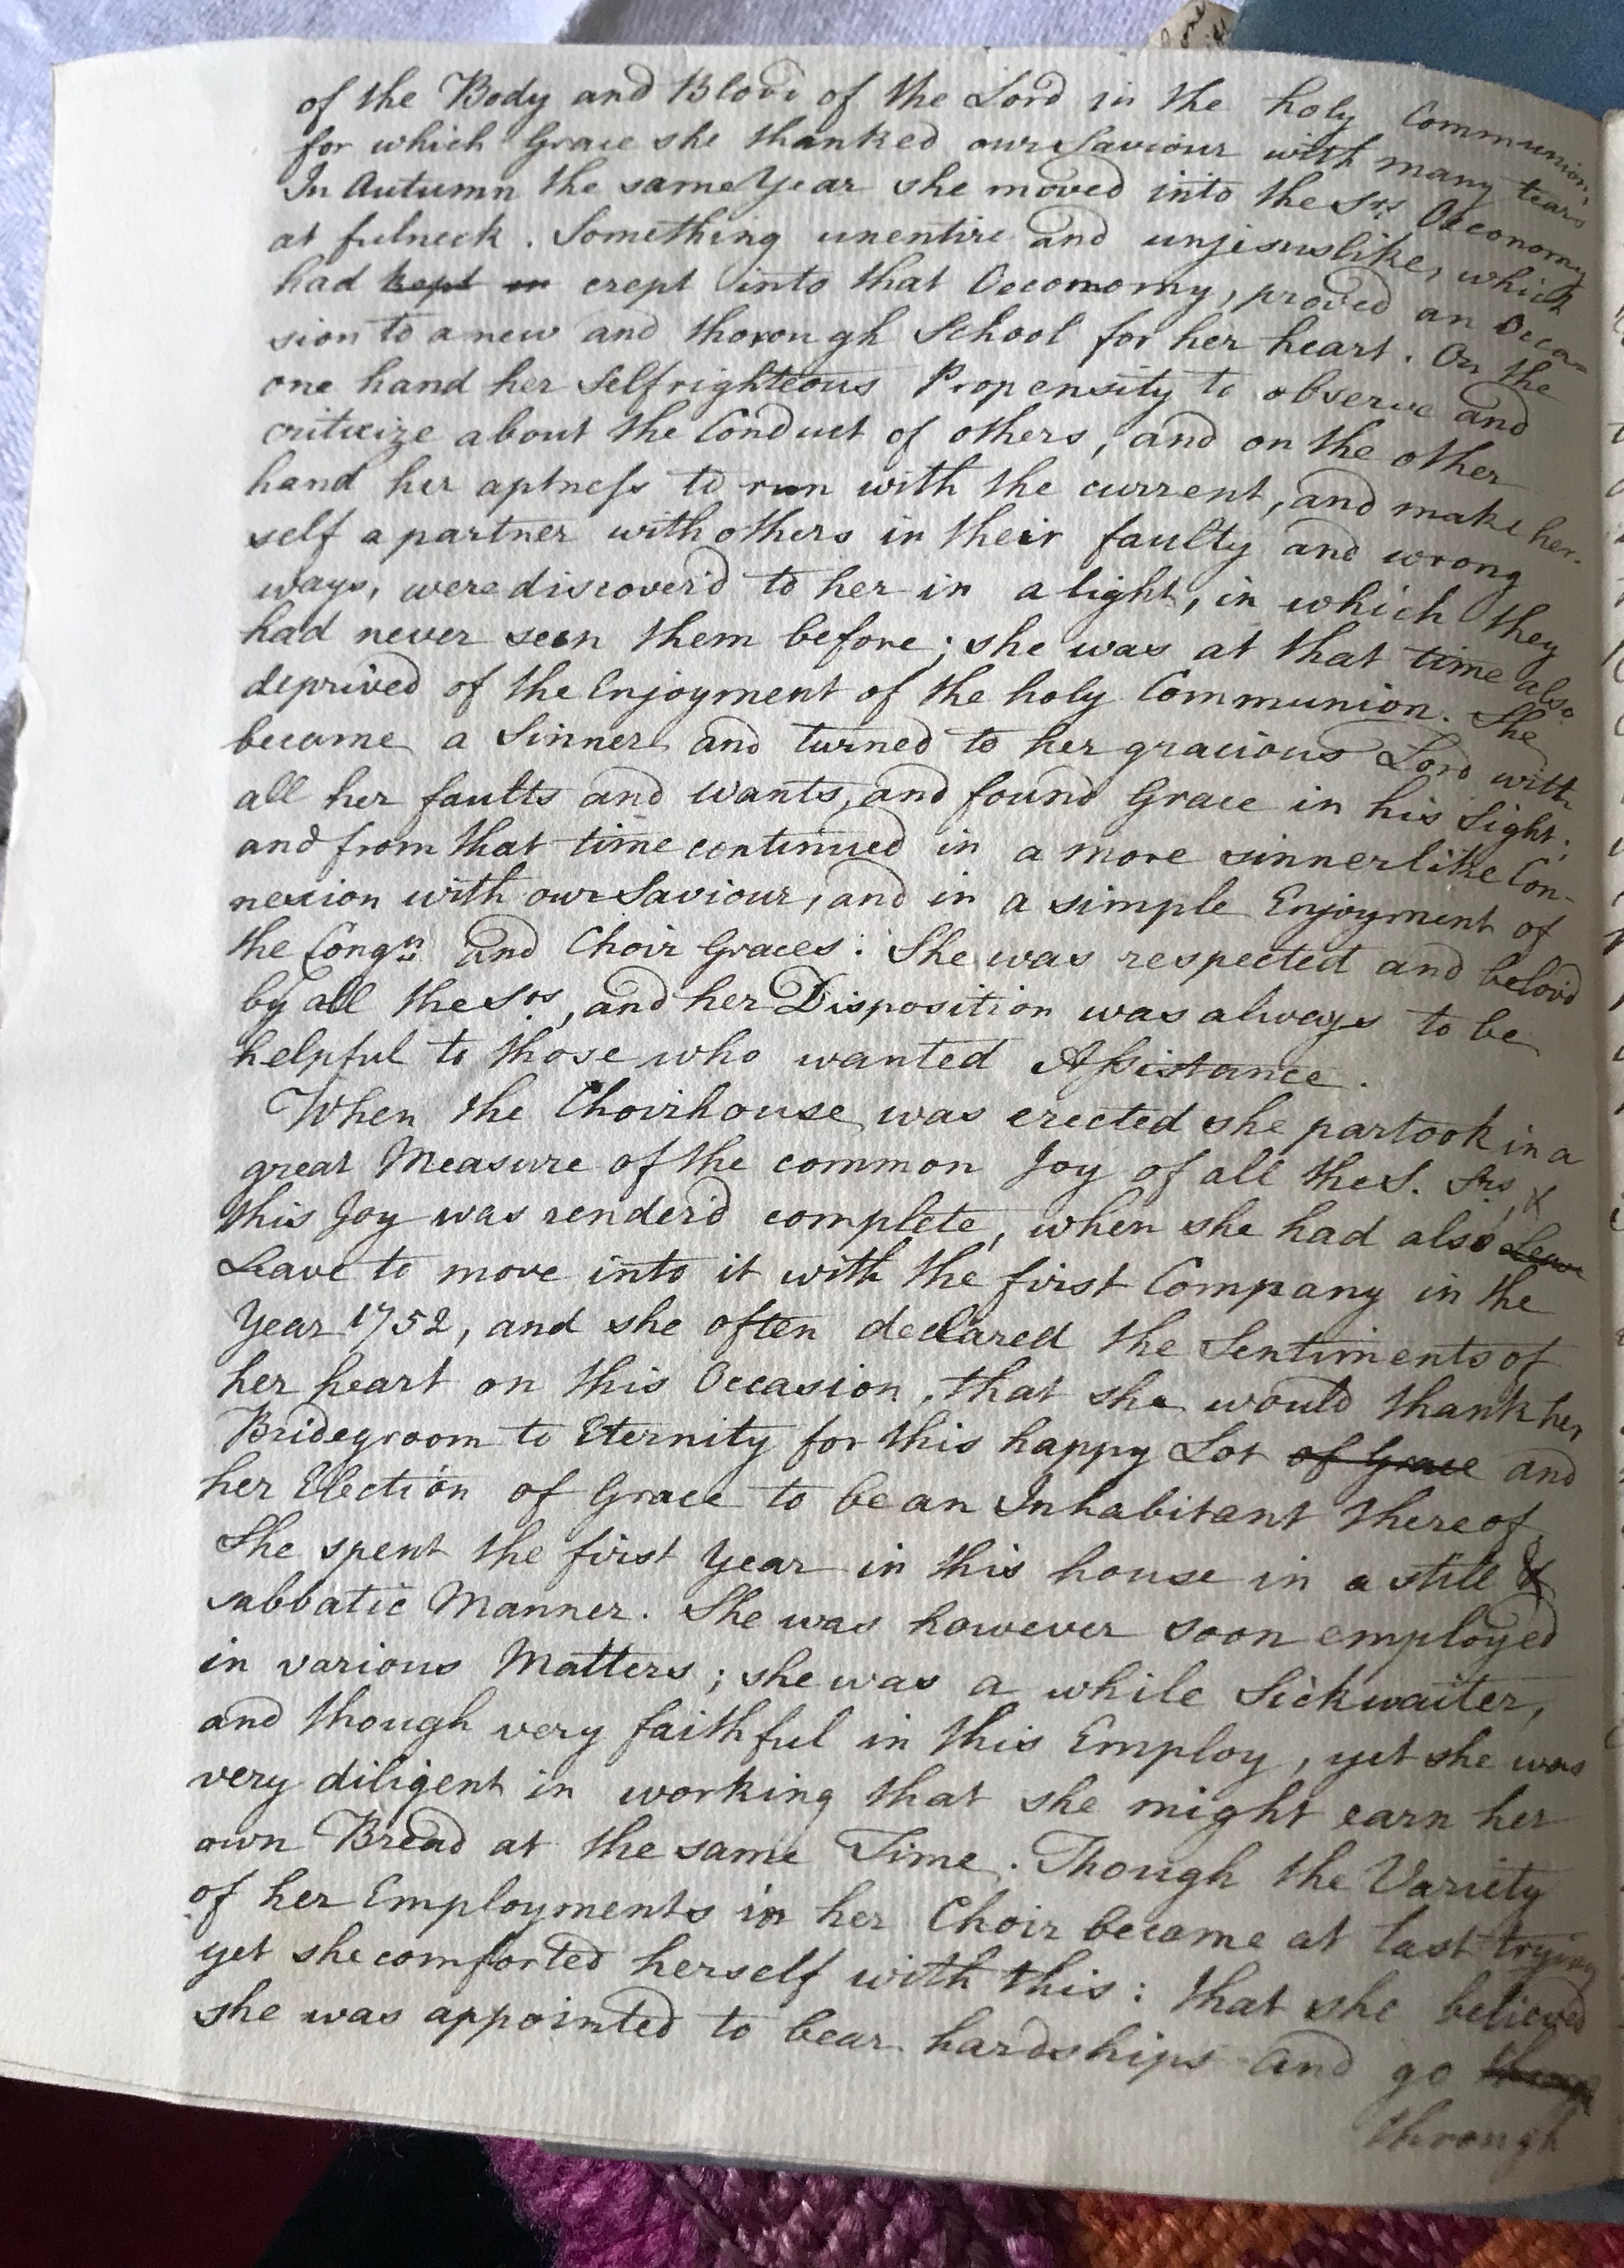 of the Body and Blood of the Lord in the holy Communion,
for which Grace she thanked our Saviour with many tears
In Autumn the same Year she moved into the Srs. Oeconomy
at fulneck. Something unentire and unjesuslike, which
had kept in crept into that Oeconomy, proved an Occa-
sion to a new and thorough School for her heart. On the
one hand her Selfrighteous Propensity to observe and
criticize about the Conduct of others, and on the other
hand her aptness to run with the current, and make her-
self a partner with others in their faulty and wrong
ways, were discover'd to her in a light, in which they
had never seen them before; she was at that time also
deprived of the Enjoyment of the holy Communion. She
became a Sinner and turned to her gracious Lord with
all her faults and wants, and found Grace in his Sight;
and from that time continued in a more sinnerlike Con-
nexion with our Saviour, and in a simple Enjoyment of
the Congn. and Choir Graces: She was respected and belov'd
by all the Srs., and her Disposition was always to be
helpful to those who wanted Assistance.
When the Choirhouse was erected she partook in a
great Measure of the common Joy of all the S. Srs, &
this Joy was render'd complete, when she had also Leave
Leave to move into it with the first Company in the
Year 1752, and she often declared the Sentiments of
her heart on this Occasion, that she would thank her
Bridegroom to Eternity for this happy Lot of Grace and
her Election of Grace to be an Inhabitant thereof.
She spent the first Year in this house in a still &
sabbatic Manner. She was however soon employed
in various Matters; she was a while Sickwaiter,
and though very faithful in this Employ, yet she was
very diligent in working that she might earn her
own Bread at the same Time. Though the Variety
of her Employments in her Choir became at last trying
yet she comforted herself with this: that she believed
she was appointed to bear hardships and go
through